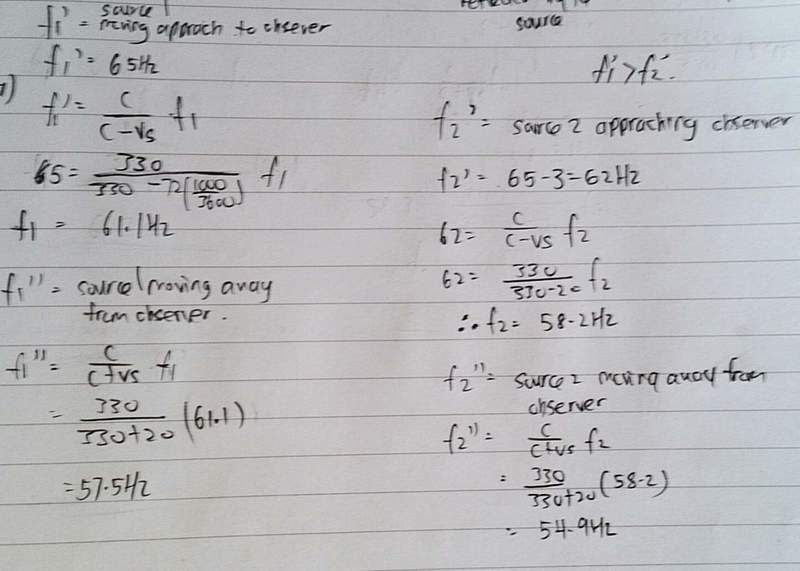 f₁' = source 1
moving approach to obsever
f₁' = 65Hz
f₁' = C/(C-Vs) f₁
65 = 330/(330-72(1000/3600)) f₁
f₁ = 61.1Hz
f₁'' = source 1 moving away
from observer.
f₁'' = C/(C+vs) f₁
= 330/(330+20) (61.1)
= 57.5Hz
source
f₁' > f₂'.
f₂' = source 2 approaching observer
f₂' = 65-3=62Hz
62 = C/(C-vs) f₂
62 = 330/(330-20) f₂
∴ f₂ = 58.2Hz
f₂'' = source 2 moving away from
observer
f₂'' = C/(C+vs) f₂
= 330/(330+20) (58.2)
= 54.9Hz